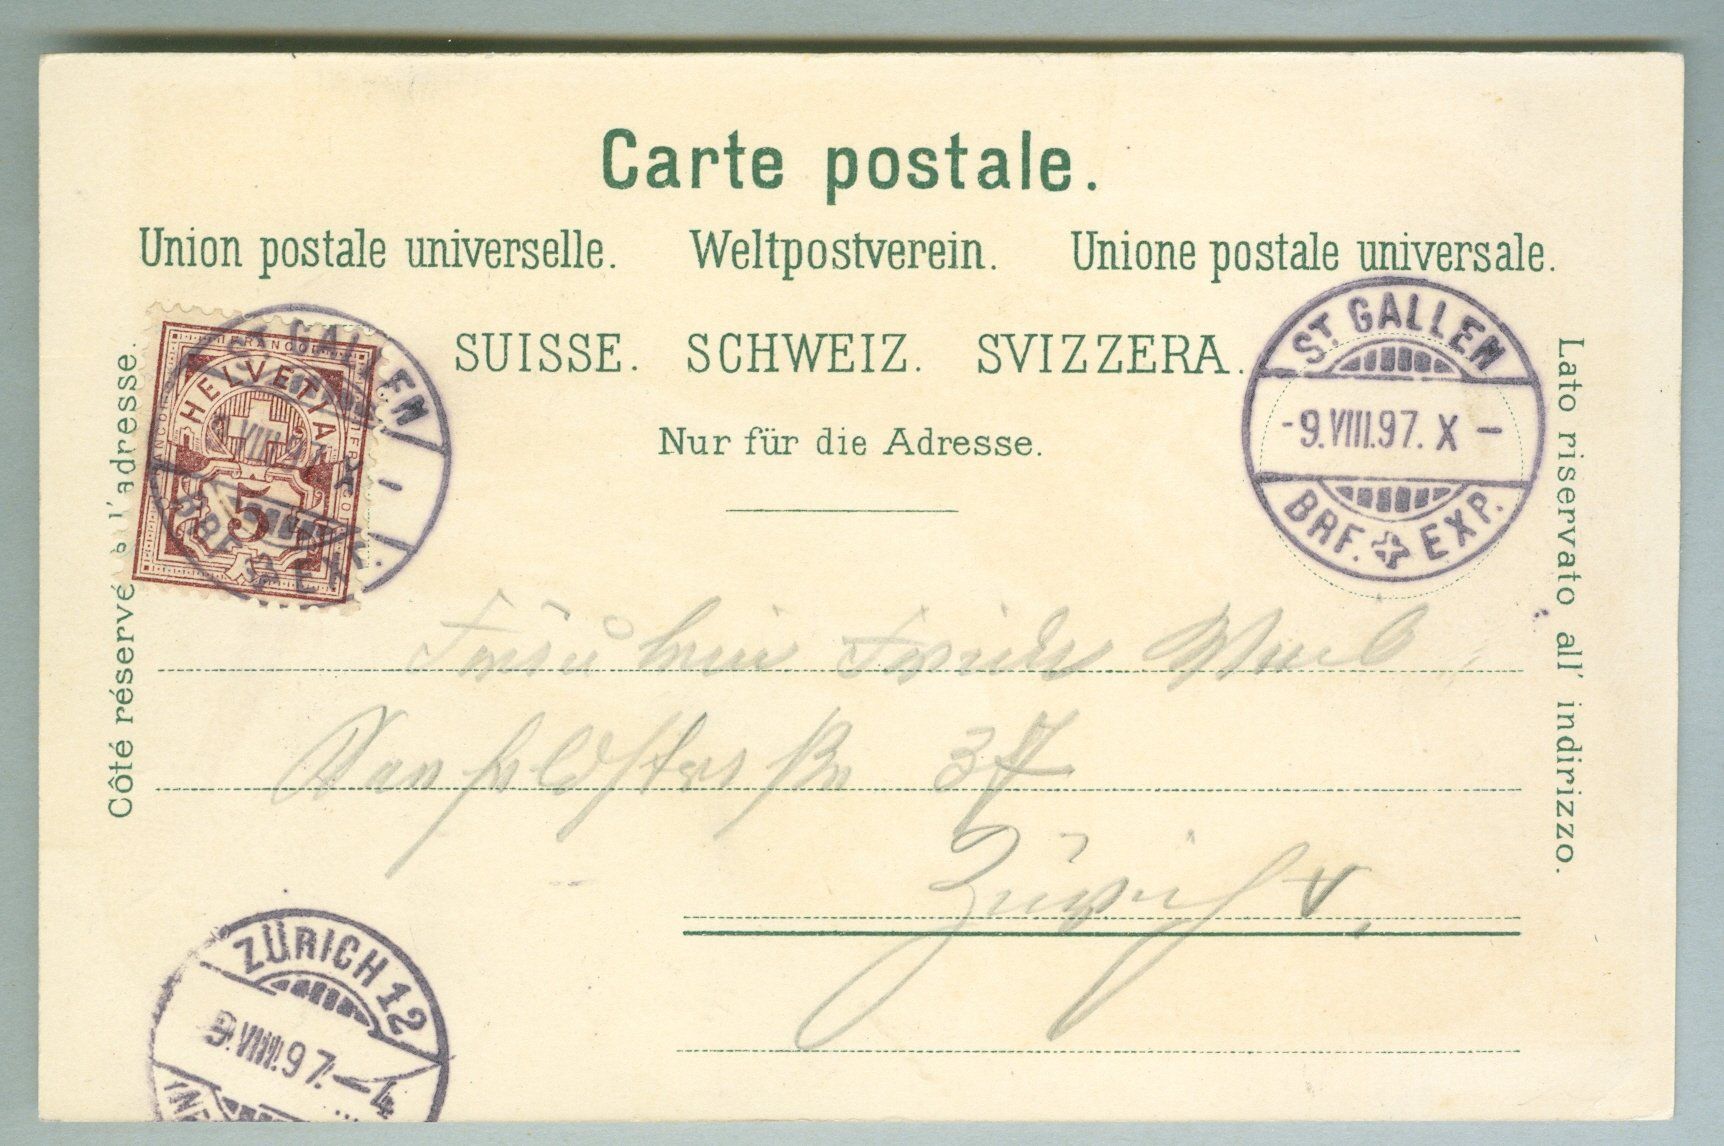 Carte postale.
Union postale universelle. Weltpostverein. Unione postale universale.
SUISSE. SCHWEIZ. SVIZZERA.
Nur für die Adresse.
Côté réservé à l'adresse.
Lato riservato all' indirizzo.
FRANCO
HELVETIA
5
ST. GALLEN
VIII.97. X -
BRF. EXP.
ST. GALLEN
-9.VIII.97. X -
BRF. EXP.
Fräulein
37
Zürich V,
ZÜRICH 12
9.VIII.97.-4